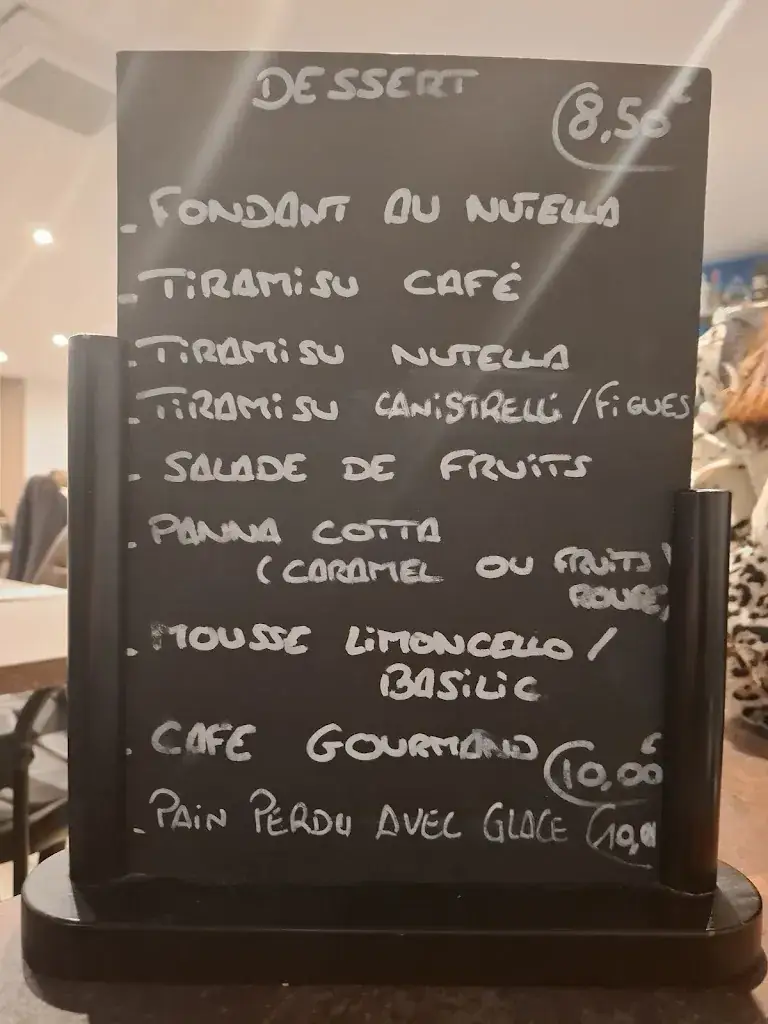 DESSERT
8,50€
- FONDANT AU NUTELLA
- TIRAMISU CAFÉ
- TIRAMISU NUTELLA
- TIRAMISU CANISTRELLI / FIGUES
- SALADE DE FRUITS
- PANNA COTTA
(CARAMEL OU FRUITS
ROUGE)
- MOUSSE LIMONCELLO /
BASILIC
- CAFE GOURMAND 10,00€
- PAIN PERDU AVEC GLACE